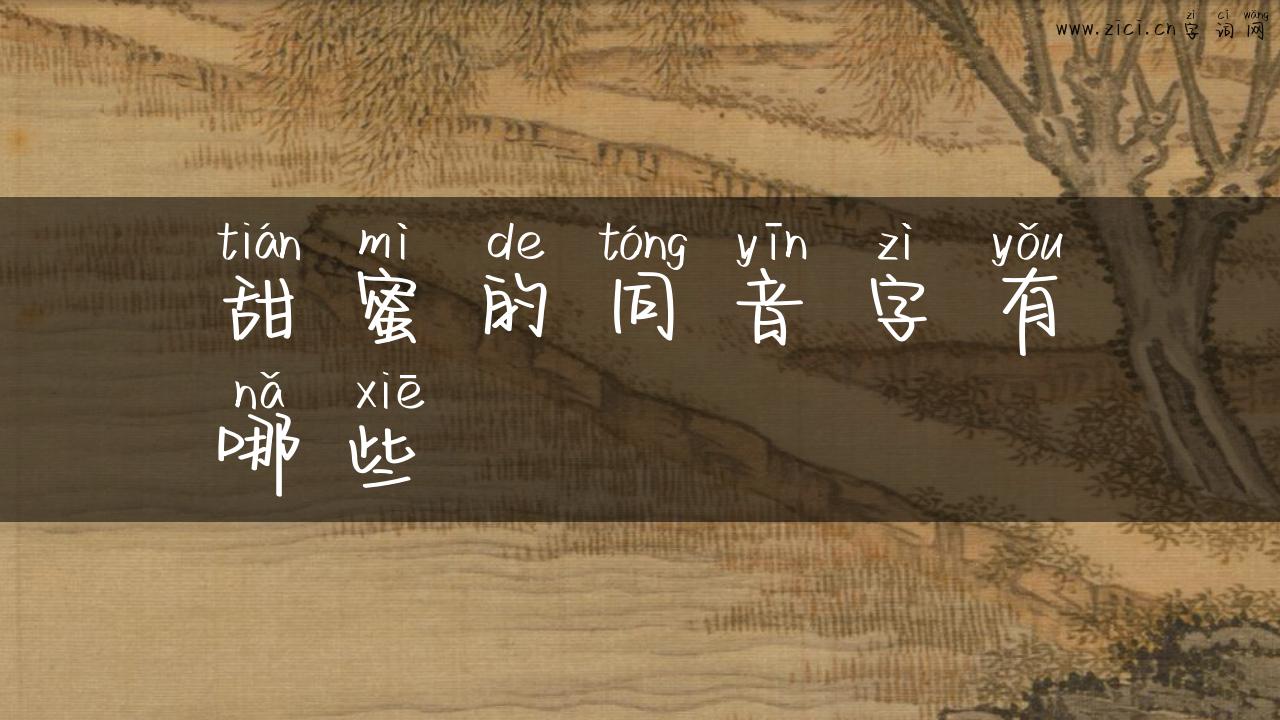 zì cí wǎng
www.zici.cn字词网
tián mì de tóng yīn zì yǒu
甜蜜的同音字有
nǎ xiē
哪些